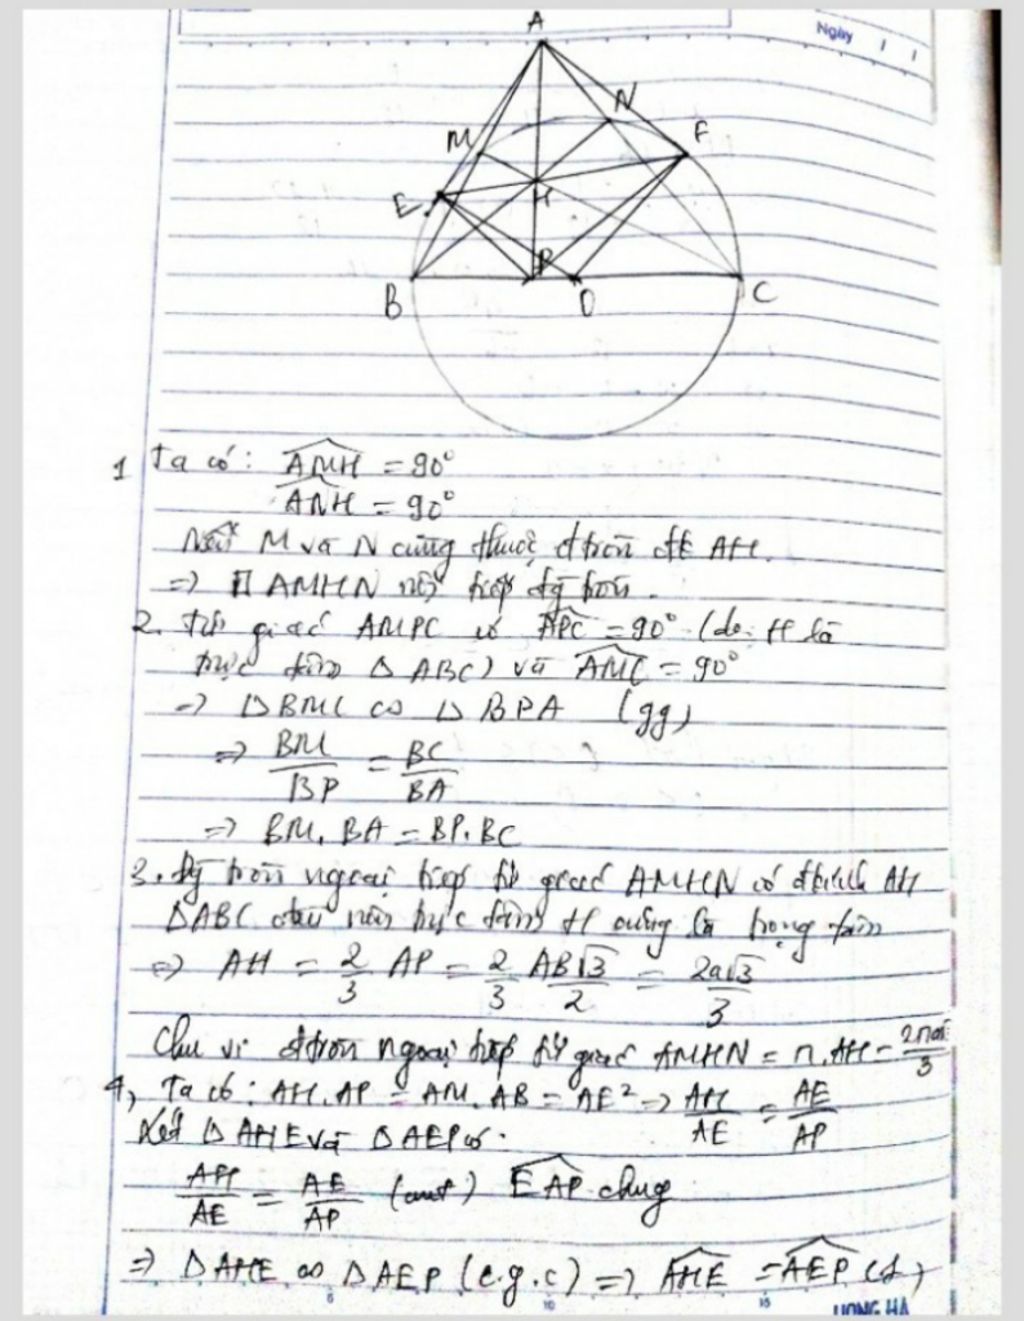 Ngày / /
A
N
M
F
E
H
P
B
O
C
1 Ta có: AMH = 90°
ANH = 90°
Nên M và N cùng thuộc đtròn đk AH.
=> □ AMHN nội tiếp đg tròn.
2. Tứ giác AMPC có APC = 90° (do H là
trực tâm △ ABC) và AMC = 90°
=> △ BMC ∽ △ BPA (gg)
=> BM/BP = BC/BA
=> BM. BA = BP. BC
3. Đg tròn ngoại tiếp tứ giác AMHN có đkính AH
△ABC đều nên trực tâm H cũng là trọng tâm
=> AH = 2/3 AP = 2/3 AB√3/2 = 2a√3/3
Chu vi đtròn ngoại tiếp tứ giác AMHN = π.AH =
4, Ta có: AH.AP = AM.AB = AE² => AH/AE = AE/AP
Xét △ AHE và △AEP có.
AH/AE = AE/AP (cmt) EAP chung
=> △AHE ∽ △AEP (c.g.c) => AHE = AEP (1)
5 10 15
HONG HA